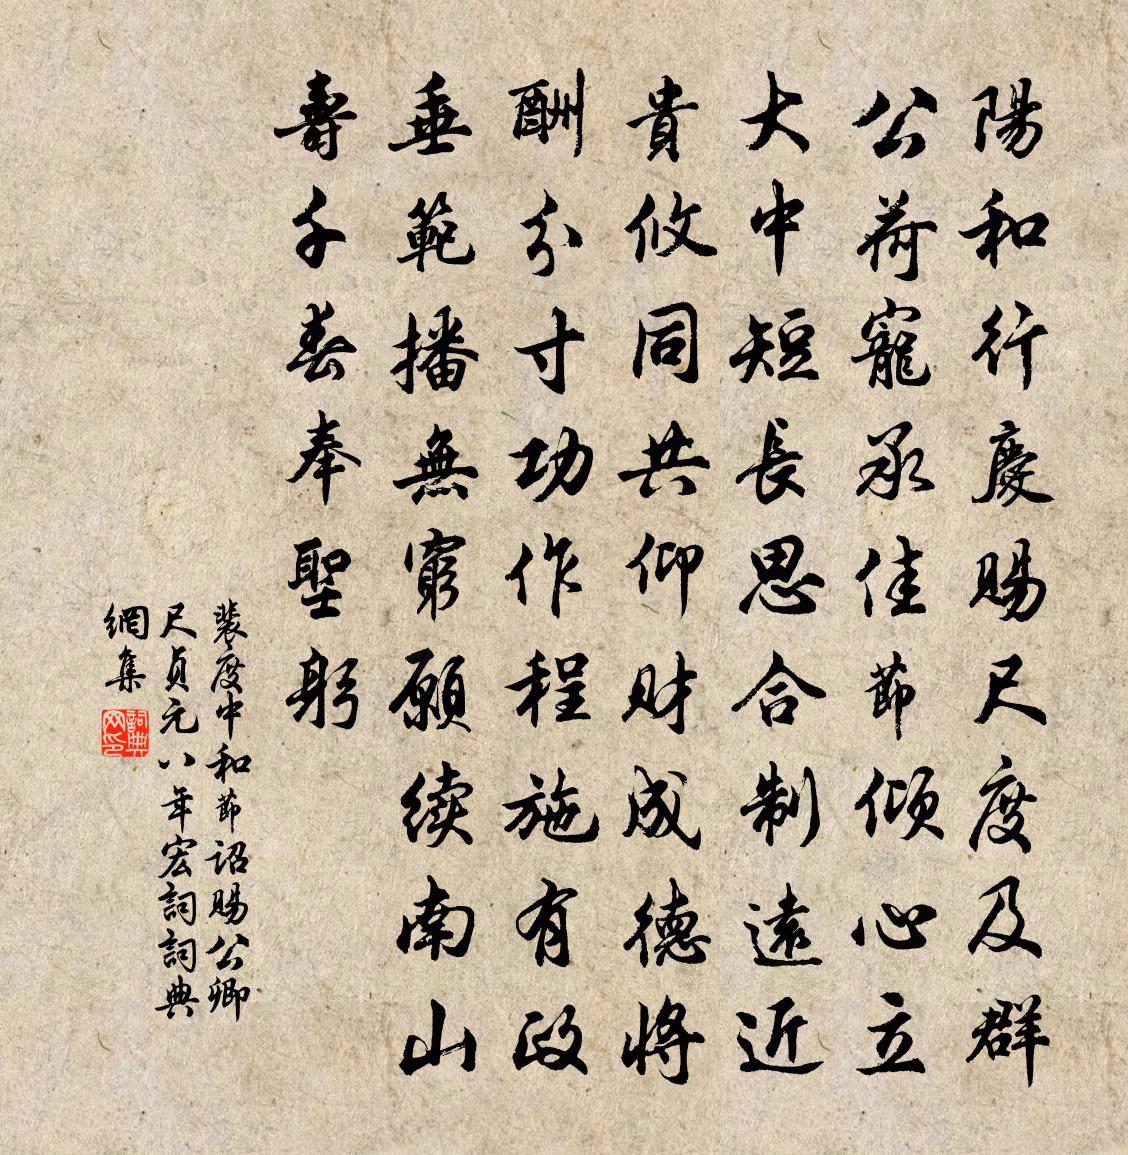 陽和行慶賜尺度及群
公荷寵承佳節傾心立
大中短長思合制遠近
貴攸同共仰財成德將
酬分寸功作程施有政
垂範播無窮願续南山
壽千春奉聖躬
裴度中和節詔賜公卿
尺貞元八年宏詞詞典
網集
詞典
网印